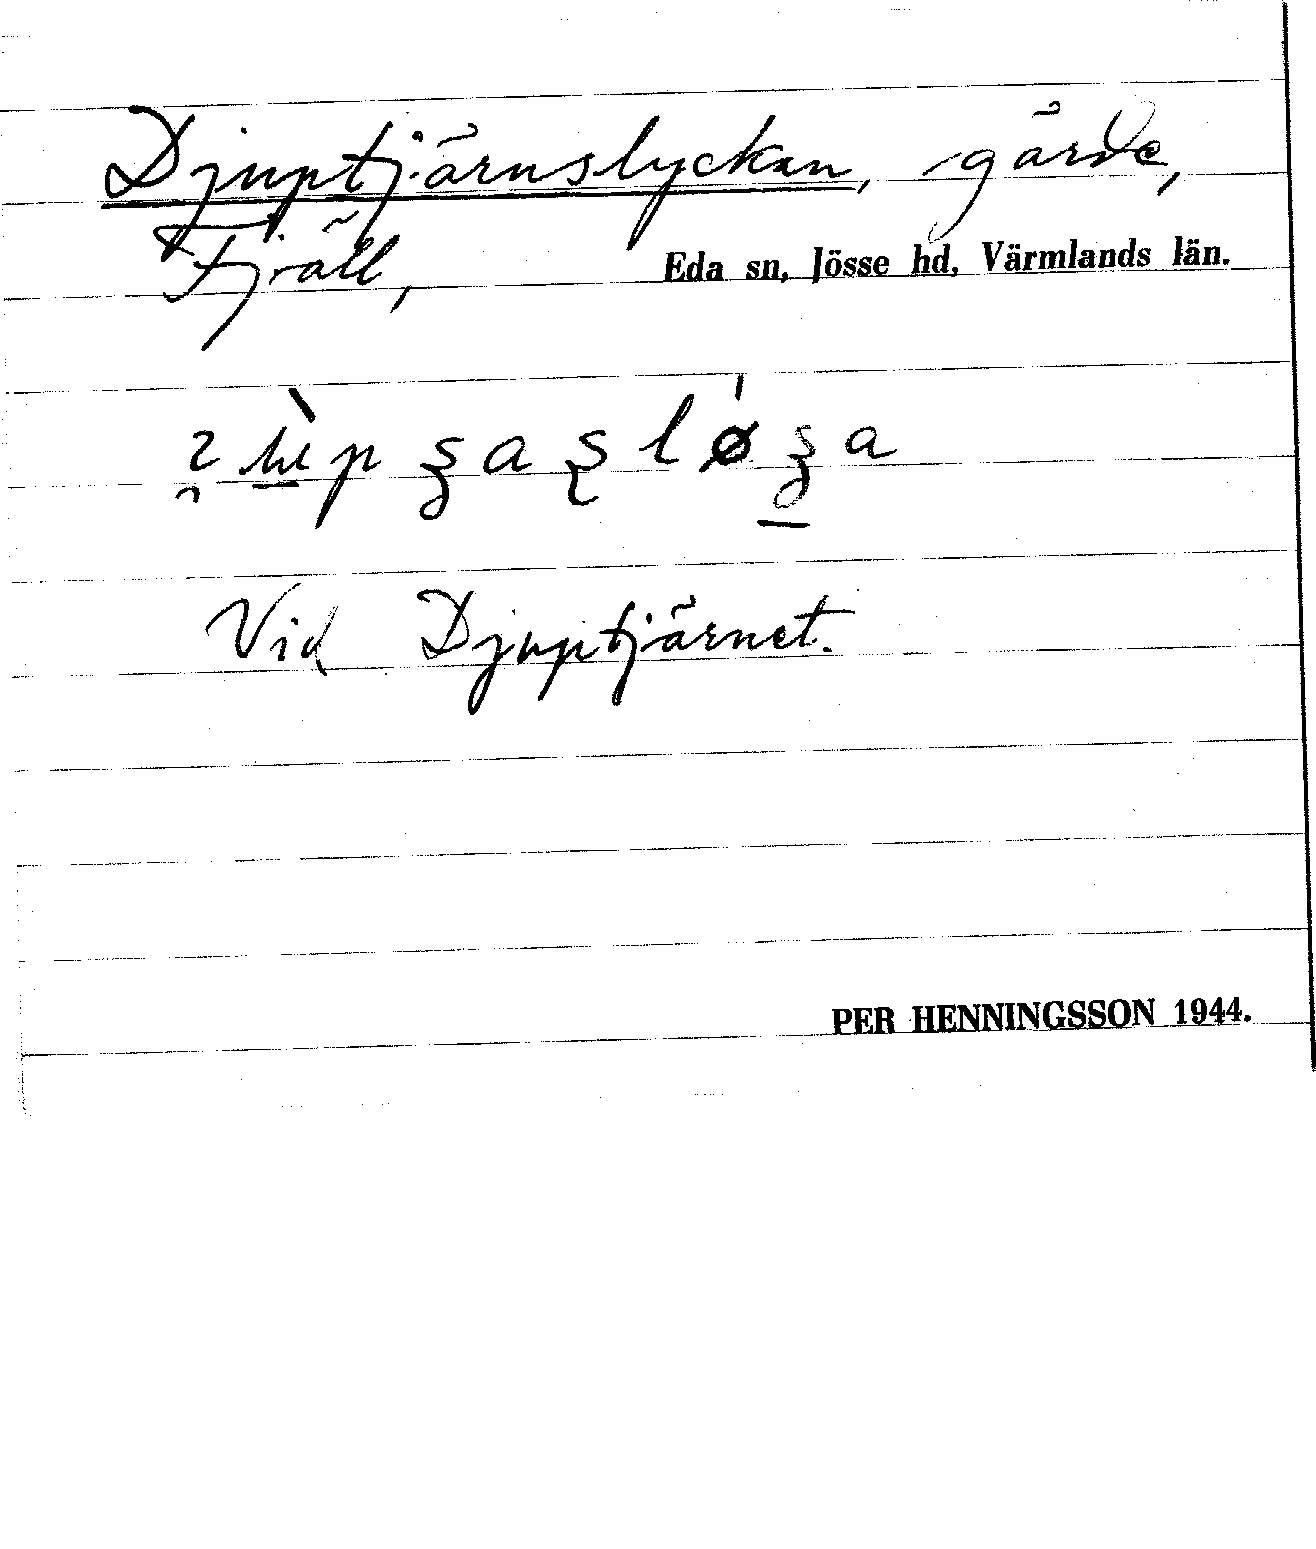 Djuptjärnslyckan, gärde,
Fjäll,
Eda sn, Jösse hd, Värmlands län.
Vid Djuptjärnet.
PER HENNINGSSON 1944.